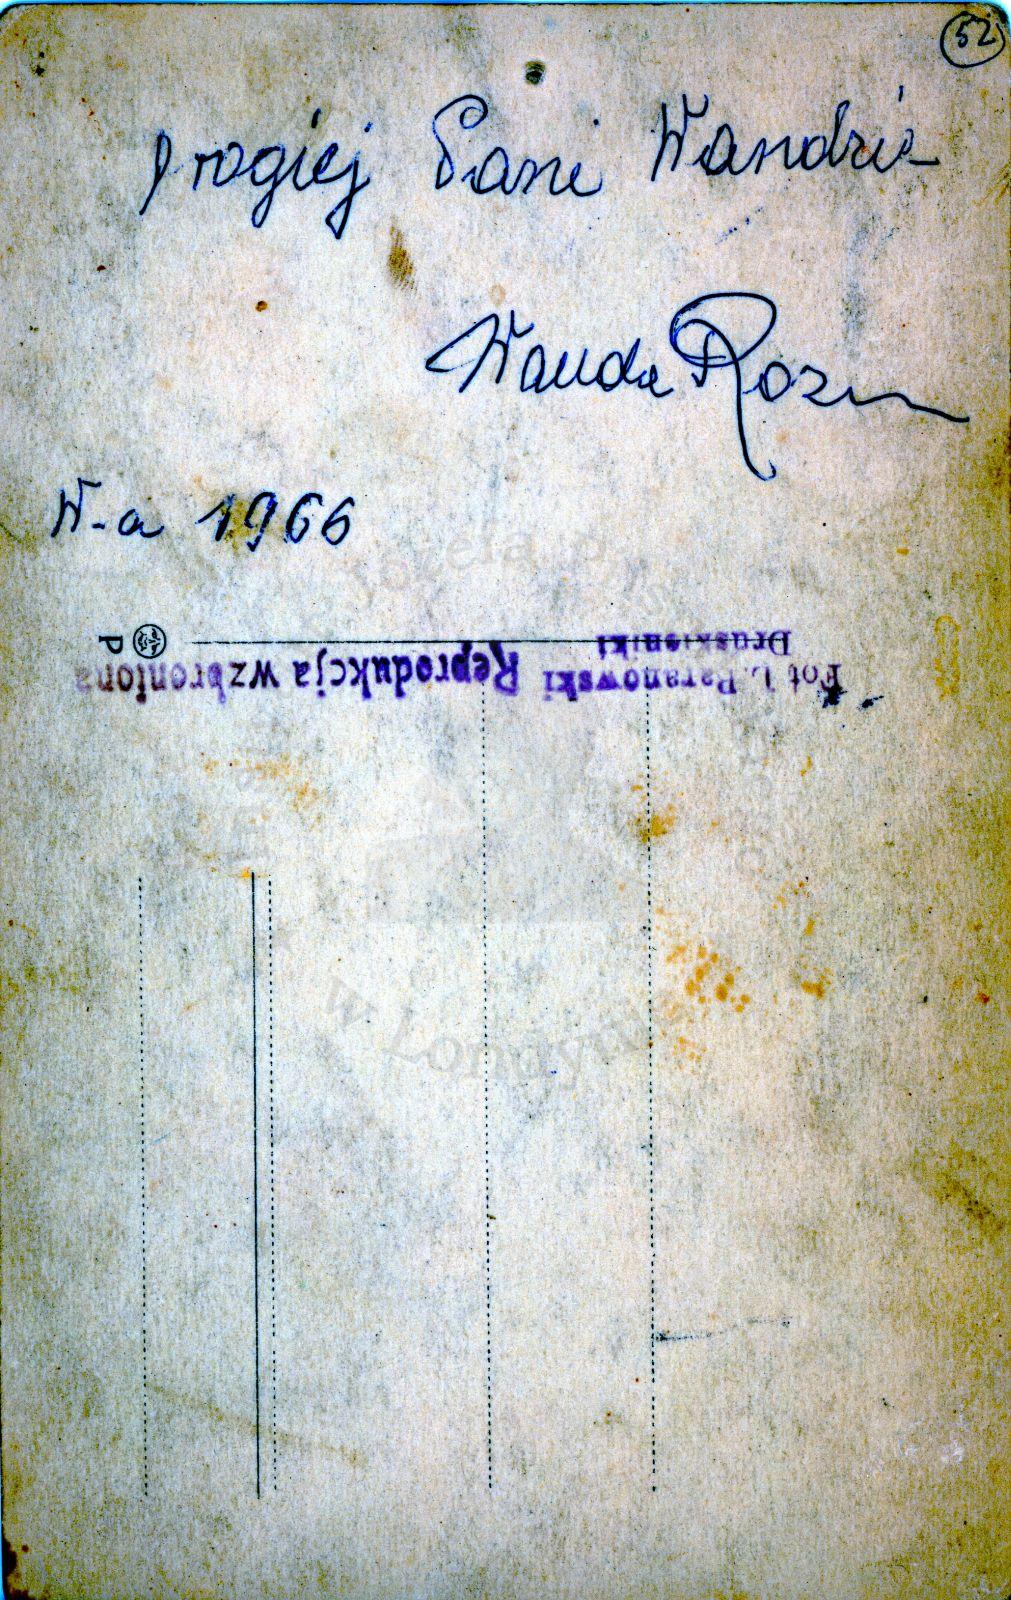 52
Drogiej Pani Wandzie
Wanda Rozm
W-a 1966
Fot. L. Baranowski Reprodukcja wzbroniona
Druskieniki
P
Józefa Piłs
w Londynie